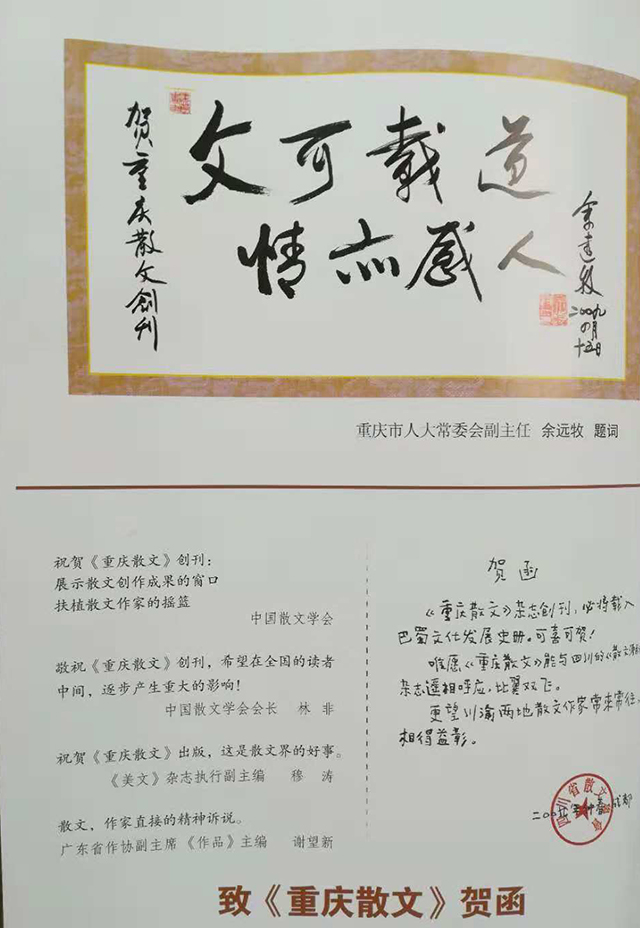 贺重庆散文创刊
文可载道
情亦感人
余远牧
二00九
四月
十五日
重庆市人大常委会副主任 余远牧 题词
祝贺《重庆散文》创刊：
展示散文创作成果的窗口
扶植散文作家的摇篮
中国散文学会
敬祝《重庆散文》创刊，希望在全国的读者
中间，逐步产生重大的影响！
中国散文学会会长 林 非
祝贺《重庆散文》出版，这是散文界的好事。
《美文》杂志执行副主编 穆 涛
散文，作家直接的精神诉说。
广东省作协副主席《作品》主编 谢望新
贺函
《重庆散文》杂志创刊，必将载入
巴蜀文化发展史册。可喜可贺！
唯愿《重庆散文》能与四川的《散文
杂志遥相呼应，比翼双飞。
更望川渝两地散文作家常来常往、
相得益彰。
四川省散文学会
成都
致《重庆散文》贺函